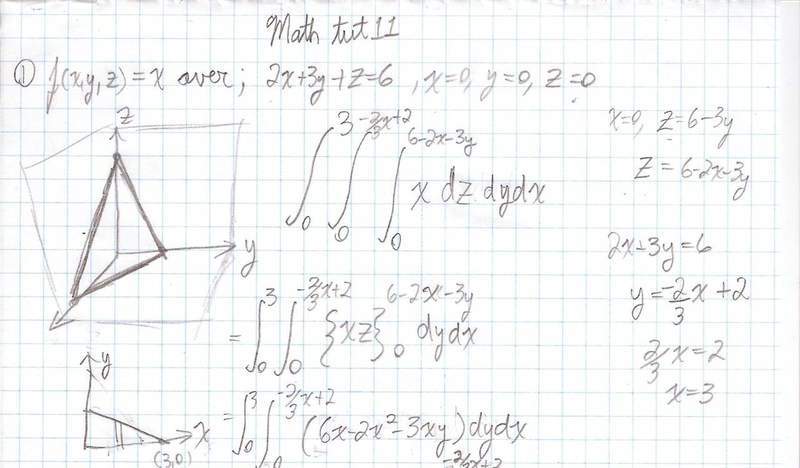 Math tut 11
① f(x,y,z) = x over; 2x+3y+z=6, x=0, y=0, z=0
z
y
∫₀³ ∫₀^(-2/3x+2) ∫₀^(6-2x-3y) x dz dy dx
x=0, z=6-3y
z=6-2x-3y
2x+3y=6
y=-2/3x+2
2/3x=2
x=3
= ∫₀³ ∫₀^(-2/3x+2) {xz}₀^(6-2x-3y) dy dx
y
x
(3,0)
= ∫₀³ ∫₀^(-2/3x+2) (6x-2x²-3xy) dy dx
-2/3x+2